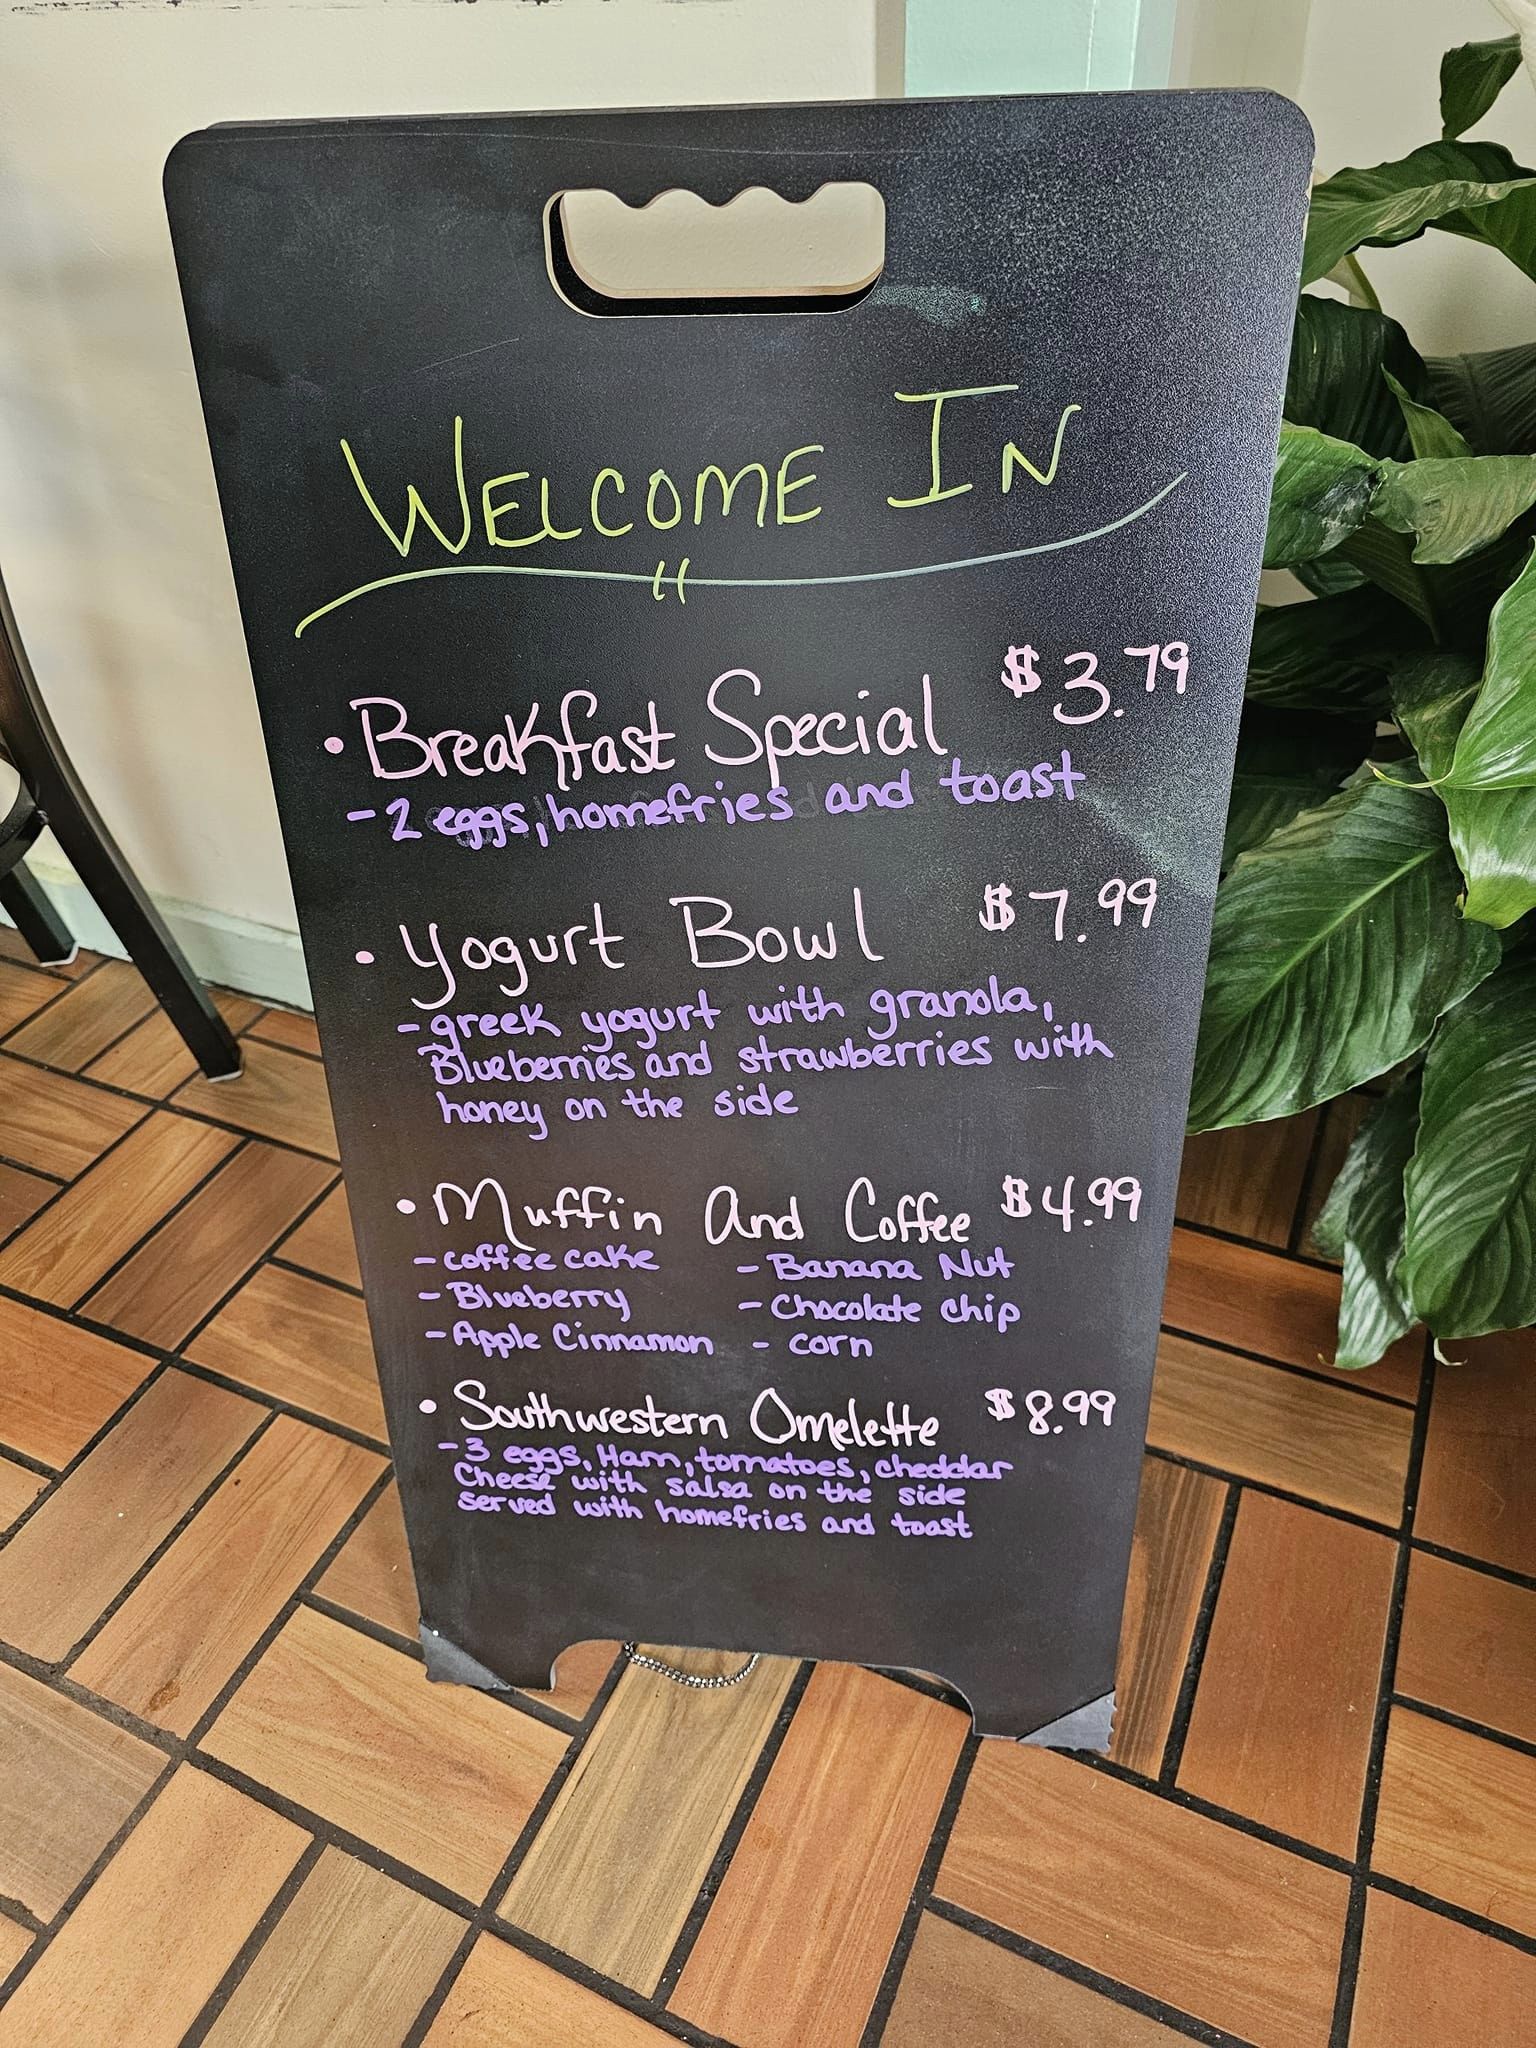 WELCOME IN
• Breakfast Special $3.79
- 2 eggs, homefries and toast
• Yogurt Bowl $7.99
- greek yogurt with granola,
Blueberries and strawberries with
honey on the side
• Muffin And Coffee $4.99
- coffee cake - Banana Nut
- Blueberry - Chocolate chip
- Apple Cinnamon - corn
• Southwestern Omelette $8.99
- 3 eggs, Ham, tomatoes, cheddar
Cheese with salsa on the side
served with homefries and toast